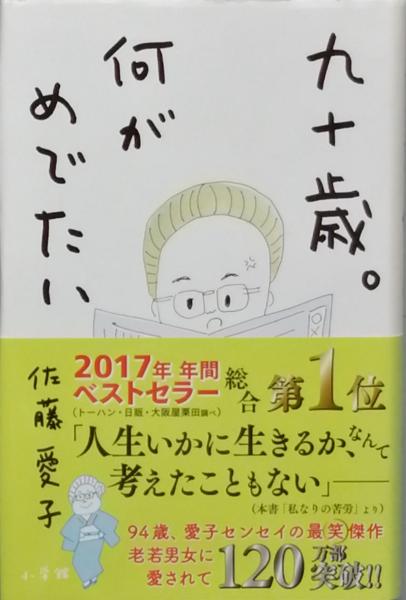 九十歳。
何が
めでたい
佐藤愛子
2017年 年間
ベストセラー
(トーハン・日販・大阪屋栗田調べ)
総合
第1位
「人生いかに生きるか、なんて
考えたこともない」——
(本書「私なりの苦労」より)
94歳、愛子センセイの最笑傑作
老若男女に
愛されて
120万部
突破!!
小学館